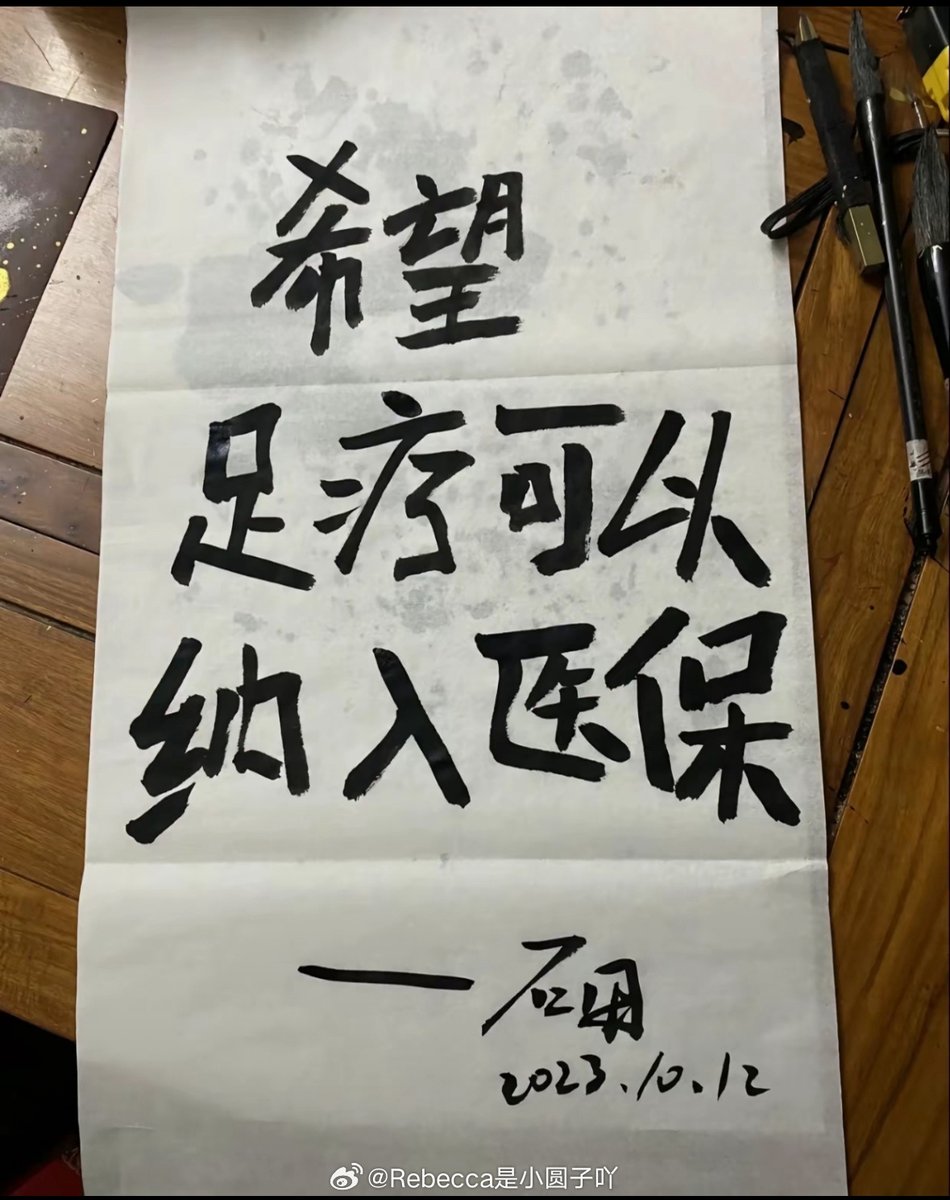 希望
足疗可以
纳入医保
2023.10.12
@Rebecca是小圆子吖